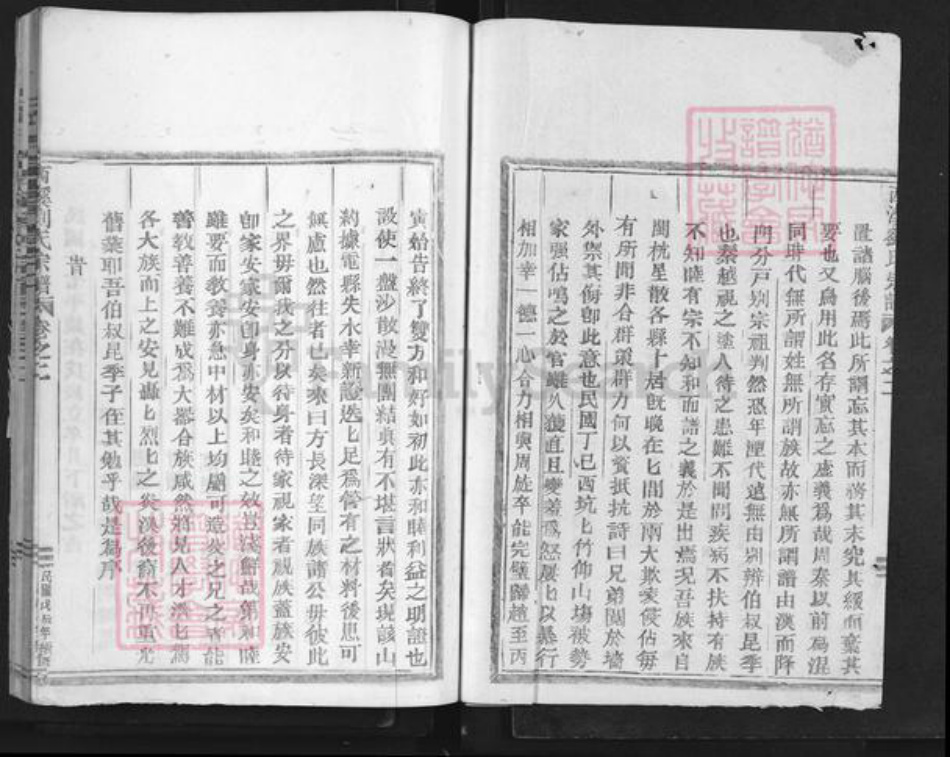 置諸腦後焉此所謂忘其本而務其末究其緩而棄其
要也又烏用此名存實忘之虛義爲哉周秦以前爲混
同時代無所謂姓無所謂族故亦無所謂譜由漢而降
門分戸別宗祖判然恐年湮代遠無由別辨伯叔昆季
也秦越視之塗人待之患難不聞問疾病不扶持有族
不知睦有宗不知和而譜之義於是出焉况吾族來自
閩杭星散各縣卜居旣晚在匕間於兩大欺凌侵佔毎
有所聞非合群策群力何以資抵抗詩曰兄弟鬩於墻
外禦其侮卽此意也民國丁巳西坑匕竹仰山塲被勢
家强佔鳴之於官雖八獲直且變羞爲怒屢匕以暴行
相加幸一德一心合力相與周旋卒能完璧歸趙至丙
寅始告終了雙方和好如初此亦和睦利益之明證也
設使一盤沙散漫無團結眞有不堪言狀者矣現該山
約據電縣失水幸新證迭匕足爲管有之材料後思可
無慮也然往者已矣來日方長深望同族諸公毋彼此
之界毋爾我之分以待身者待家視家者視族蓋族安
卽家安家安卽身亦安矣和睦之效豈淺鮮哉第和睦
雖要而教養亦急中材以上均屬可造父之兄之皆能
善教善養不難成爲大器合族咸然將見人才濟匕
各大族而上之安見轟匕烈匕之炎漢後裔不再重光
舊業耶吾伯叔昆季子侄其勉乎哉是爲序
南溪劉氏宗譜 卷之二
民國戊辰年續修